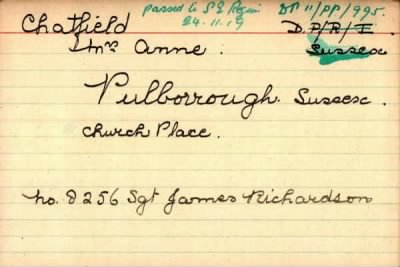 passed to S E Region DP 11/PP/995.
24.11.19
Chatfield D.P/R/F
Mrs Anne. Sussex
Pulborrough. Sussex.
Church Place.
No. 8256 Sgt James Richardson